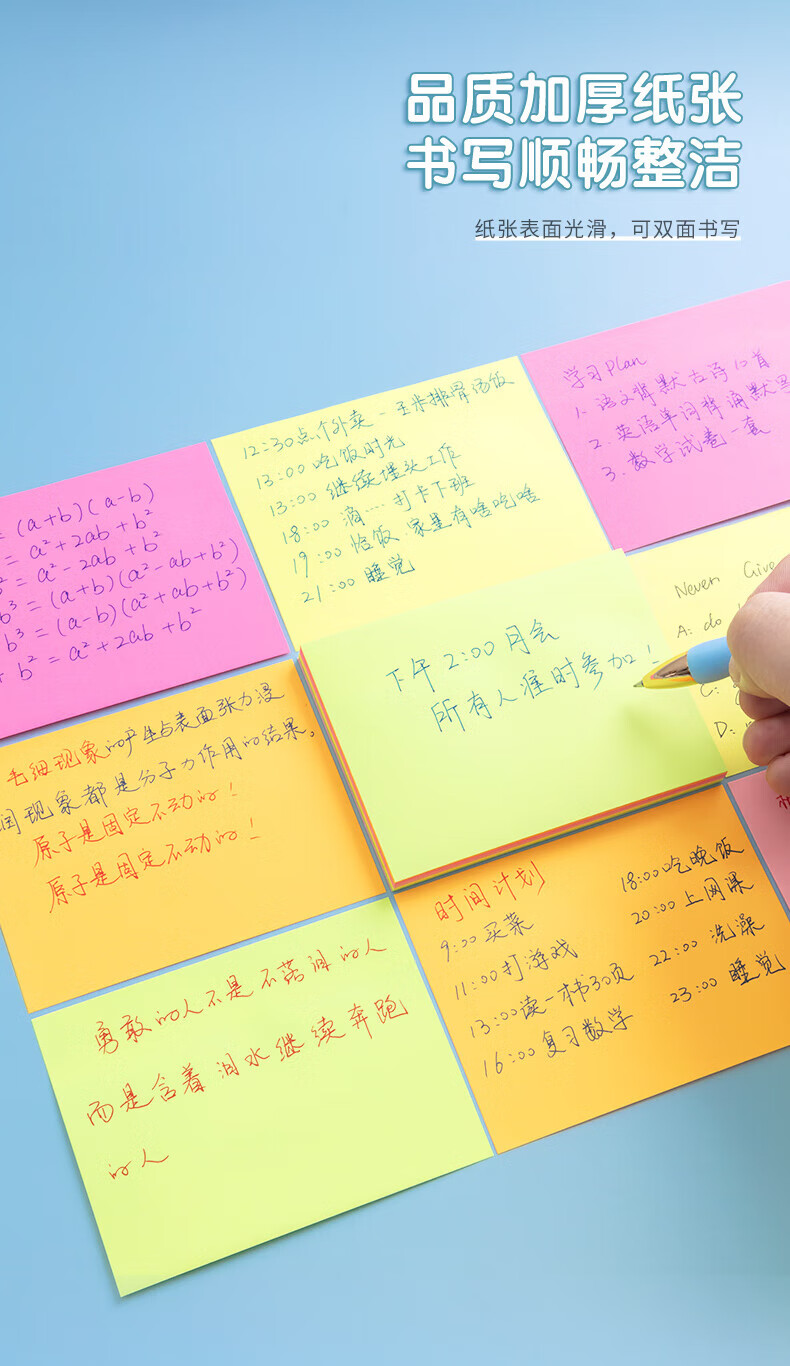 品质加厚纸张
书写顺畅整洁
纸张表面光滑，可双面书写
学习Plan
1. 语文背默古诗12首
2. 英语单词背诵默写
3. 数学试卷一套
12:30点个外卖-玉米排骨汤饭
13:00 吃饭时光
13:00 继续埋头工作
18:00 滴····打卡下班
19:00 恰饭 家里有啥吃啥
21:00 睡觉
= (a+b)(a-b)
= a²+2ab+b²
= a²-2ab+b²
b³ = (a+b)(a²-ab+b²)
b³ = (a-b)(a²+ab+b²)
+ b² = a²+2ab+b²
Never Give
A: do
C:
D:
下午2:00月会
所有人准时参加!
毛细现象的产生与表面张力浸
润现象都是分子力作用的结果。
原子是固定不动的!
原子是固定不动的!
时间计划
9:00 买菜
11:00 打游戏
13:00 读一本书30页
16:00 复习数学
18:00 吃晚饭
20:00 上网课
22:00 洗澡
23:00 睡觉
勇敢的人不是不落泪的人
而是含着泪水继续奔跑
的人